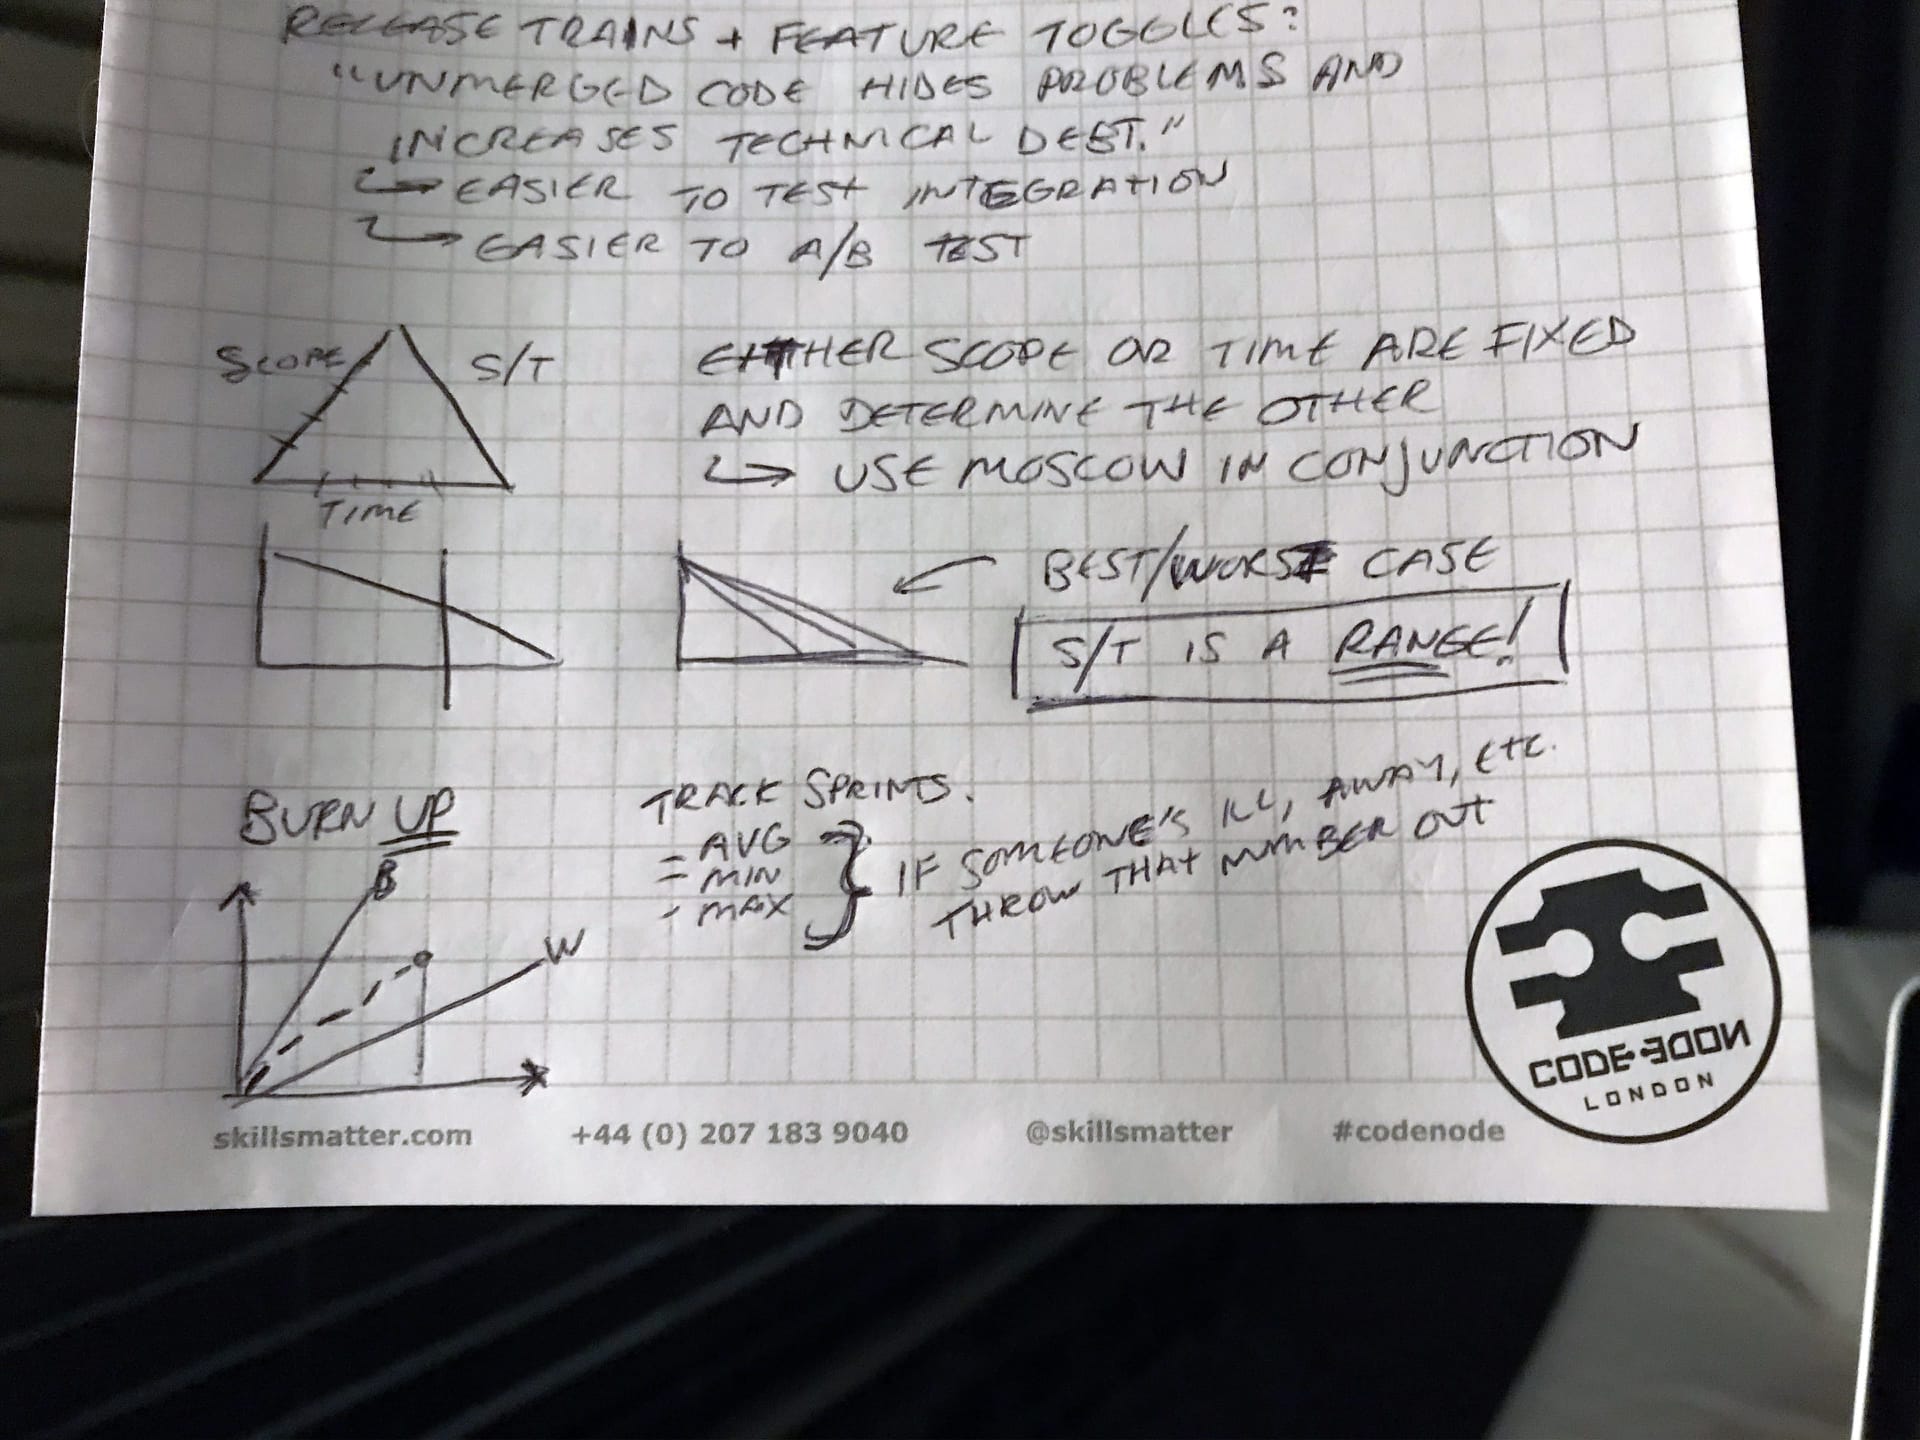 RELEASE TRAINS + FEATURE TOGGLES?
"UNMERGED CODE HIDES PROBLEMS AND
INCREASES TECHNICAL DEBT."
↳ EASIER TO TEST INTEGRATION
↳ EASIER TO A/B TEST
SCOPE
S/T
TIME
EITHER SCOPE OR TIME ARE FIXED
AND DETERMINE THE OTHER
↳ USE MOSCOW IN CONJUNCTION
BEST/WORST CASE
S/T IS A RANGE!
BURN UP
B
W
TRACK SPRINTS.
- AVG
- MIN
- MAX
IF SOMEONE'S ILL, AWAY, ETC.
THROW THAT NUMBER OUT
CODE-NODE
LONDON
skillsmatter.com +44 (0) 207 183 9040 @skillsmatter #codenode